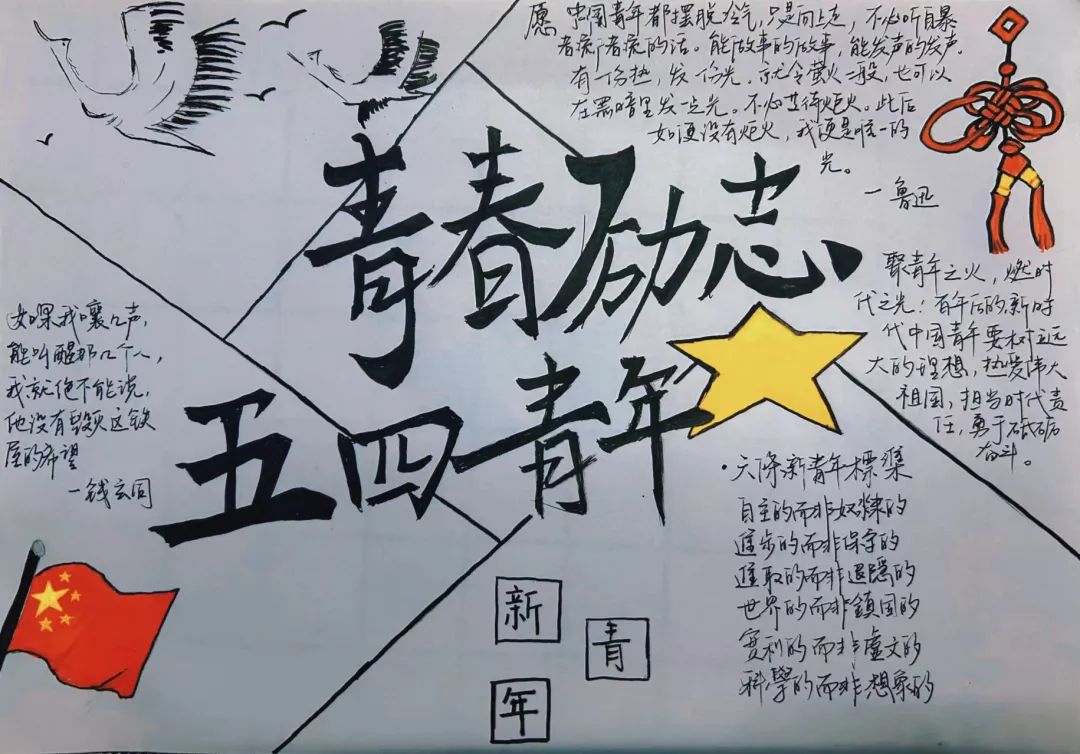 愿 中国青年都摆脱冷气,只是向上走,不必听自暴
者流的话。能做事的做事,能发声的发声。
有一份热,发一份光。就令萤火一般,也可以
在黑暗里发一点光。不必等待炬火。此后
如便没有炬火,我便是唯一的
光。
—鲁迅
青春励志
五四青年
聚青年之火,燃时
代之光:百年后的新时
代中国青年要树立远
大的理想,热爱伟大
祖国,担当时代责
任,勇于砥砺
奋斗。
如果我嚷几声,
能叫醒那几个人,
我就绝不能说,
他没有毁灭这铁
屋的希望
—钱玄同
·六條新青年標準
自主的而非奴隸的
進步的而非保守的
進取的而非退隱的
世界的而非鎖國的
實利的而非虛文的
科學的而非想象的
新
青
年